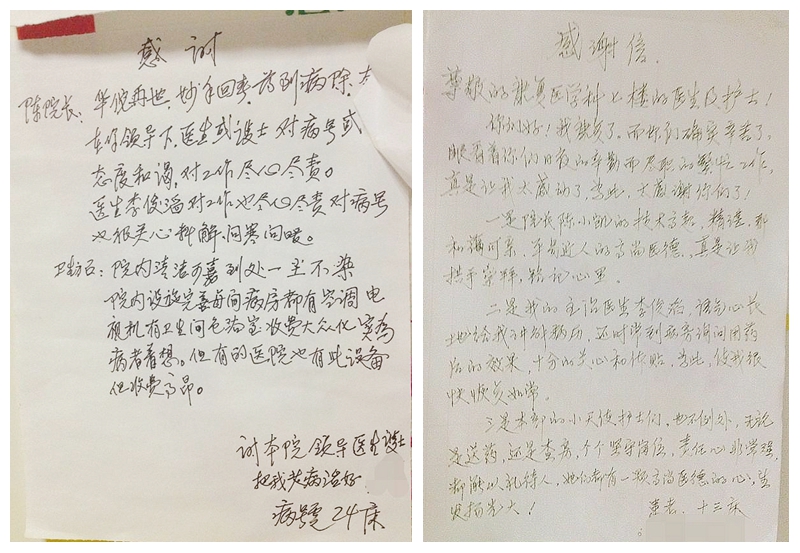 感谢
陈院长：华佗再世，妙手回春，药到病除，本
在你领导下，医生或护士对病号或
态度和谒，对工作尽心尽责。
医生李俊滔对工作也尽心尽责对病号
也很关心科解，问寒问暖。
卫生方面：院内清洁可嘉到处一尘不染
院内设施完善每间病房都有空调电
视机有卫生间包治室收费大众化实为
病者着想。但有的医院也有此设备
但收费高昂。
谢本院领导医生护士
把我老病治好
病号 24床
感谢信.
尊敬的康复医学科七楼的医生及护士！
你们好！我就要了。而你们确实辛苦了。
眼看着你们日夜的辛勤而尽职的繁忙工作，
真是让我太感动了，为此，太感谢你们了！
一是院长陈小凯的技术高超，精湛，那
和谒可亲，平易近人的高尚医德，真是让我
拱手崇拜，铭记心里。
二是我的主治医生李俊滔，语重心长
地给我讲解病历，还时常到病旁询问用药
后的效果，十分的关心和体贴，为此，使我很
快恢复如常。
三是本部的小天使护士们，也不例外，无论
是送药，还是查房，个个坚守岗位，责任心非常强，
都能以礼待人，她们都有一颗高尚医德的心，望
更扬光大！
患者．十三床